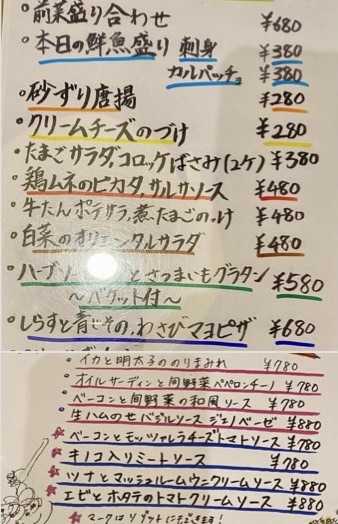 ・前菜盛り合わせ ¥680
・本日の鮮魚盛り 刺身 ¥380
カルパッチョ ¥380
・砂ずり唐揚 ¥280
・クリームチーズのづけ ¥280
・たまごサラダ、コロッケばさみ(2ヶ) ¥380
・鶏ムネのピカタ、サルサソース ¥480
・牛たんポテサラ、煮たまごのっけ ¥480
・白菜のオリエンタルサラダ ¥480
・ハーブソ とさつまいもグラタン ¥580
〜バケット付〜
・しらすと青じその、わさびマヨピザ ¥680
・イカと明太子ののりまみれ ¥780
・オイルサーディンと旬野菜ペペロンチーノ ¥780
・ベーコンと旬野菜の和風ソース ¥780
・生ハムのせバジルソース ジェノベーゼ ¥880
☆ベーコンとモッツァレラチーズトマトソース ¥780
☆キノコ入りミートソース ¥780
☆ツナとマッシュルームウニクリームソース ¥880
☆エビとホタテのトマトクリームソース ¥880
☆マークはリゾットにできます!